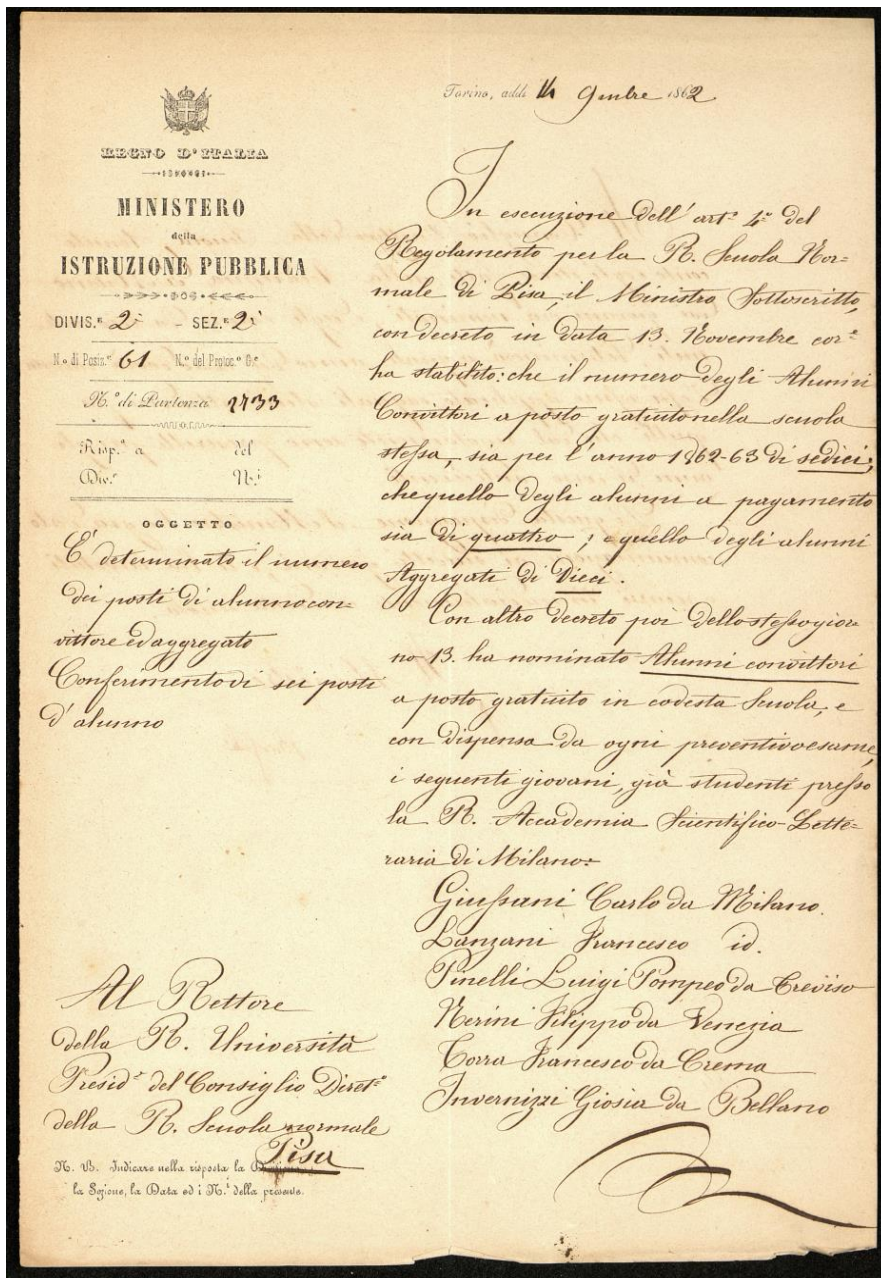 REGNO D'ITALIA
MINISTERO
della
ISTRUZIONE PUBBLICA
DIVIS.e 2a - SEZ.e 2a
N.o di Posiz.e 61 N.o del Protoc.o G.e
N.o di Partenza 1733
Risp.a a del
Div.e N.i
OGGETTO
E' determinato il numero
dei posti di alunno con-
vittore ed aggregato
Conferimento di sei posti
d'alunno
Al Rettore
della R. Università
Presid.e del Consiglio Dirett.o
della R. Scuola normale
Pisa
N. B. Indicare nella risposta la Divisione,
la Sezione, la Data ed i N.i della presente.
Torino, addì 14 9mbre 1862
In esecuzione dell'art.o 4.o del
Regolamento per la R. Scuola Nor-
male di Pisa, il Ministro Sottoscritto,
con decreto in data 13. Novembre cor.e
ha stabilito: che il numero degli Alunni
Convittori a posto gratuito nella scuola
stessa, sia per l'anno 1862-63 di sedici;
che quello degli alunni a pagamento
sia di quattro; e quello degli alunni
Aggregati di Dieci.
Con altro decreto poi dello stesso gior
no 13. ha nominato Alunni convittori
a posto gratuito in codesta Scuola, e
con dispensa da ogni preventivo esame,
i seguenti giovani, già studenti presso
la R. Accademia Scientifico-Lette-
raria di Milano:
Giussani Carlo da Milano.
Lanzani Francesco id.
Pinelli Luigi Pompeo da Treviso
Nerini Filippo da Venezia
Torra Francesco da Crema
Invernizzi Giosia da Bellano